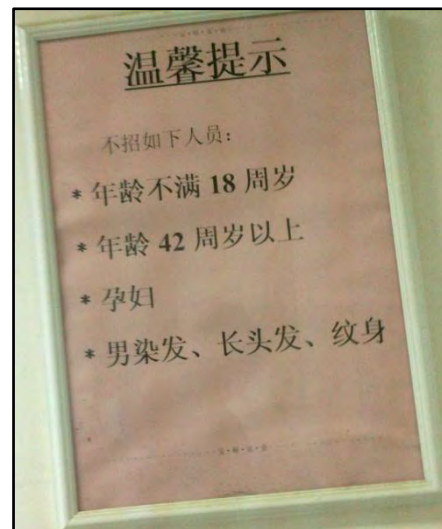 温馨提示
不招如下人员：
* 年龄不满 18 周岁
* 年龄 42 周岁以上
* 孕妇
* 男染发、长头发、纹身